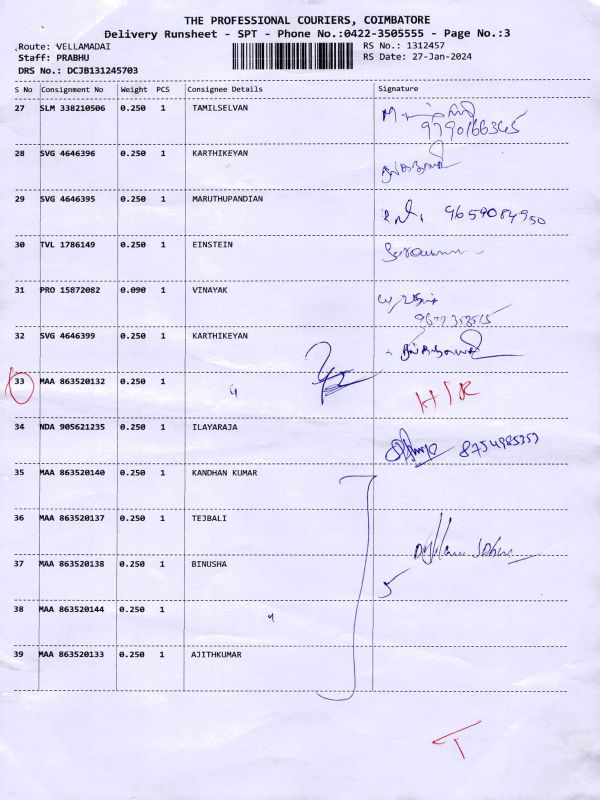 THE PROFESSIONAL COURIERS, COIMBATORE
Delivery Runsheet - SPT - Phone No.:0422-3505555 - Page No.:3
Route: VELLAMADAI RS No.: 1312457
Staff: PRABHU RS Date: 27-Jan-2024
DRS No.: DCJB131245703
S No Consignment No Weight PCS Consignee Details Signature
27 SLM 338210506 0.250 1 TAMILSELVAN
9790166345
28 SVG 4646396 0.250 1 KARTHIKEYAN
29 SVG 4646395 0.250 1 MARUTHUPANDIAN
9659084950
30 TVL 1786149 0.250 1 EINSTEIN
31 PRO 15872082 0.090 1 VINAYAK
32 SVG 4646399 0.250 1 KARTHIKEYAN
33 MAA 863520132 0.250 1
34 NDA 905621235 0.250 1 ILAYARAJA
35 MAA 863520140 0.250 1 KANDHAN KUMAR
36 MAA 863520137 0.250 1 TEJBALI
37 MAA 863520138 0.250 1 BINUSHA
5
38 MAA 863520144 0.250 1
39 MAA 863520133 0.250 1 AJITHKUMAR